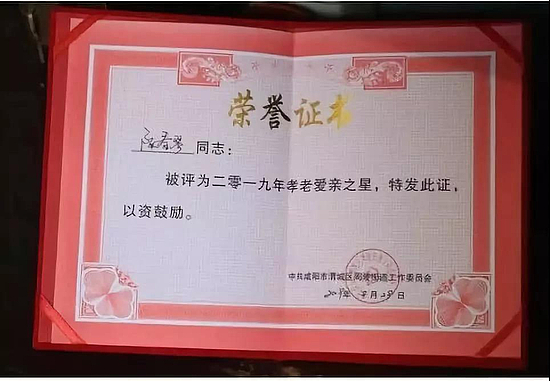 荣誉证书
陈春琴 同志：
被评为二零一九年孝老爱亲之星，特发此证，
以资鼓励。
中共咸阳市渭城区周陵街道工作委员会
月 日